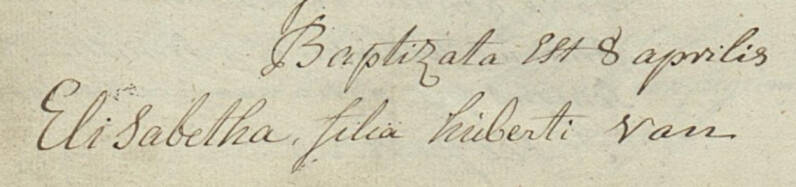 Baptizata Est 8 aprilis
Elisabetha. filia huberti van